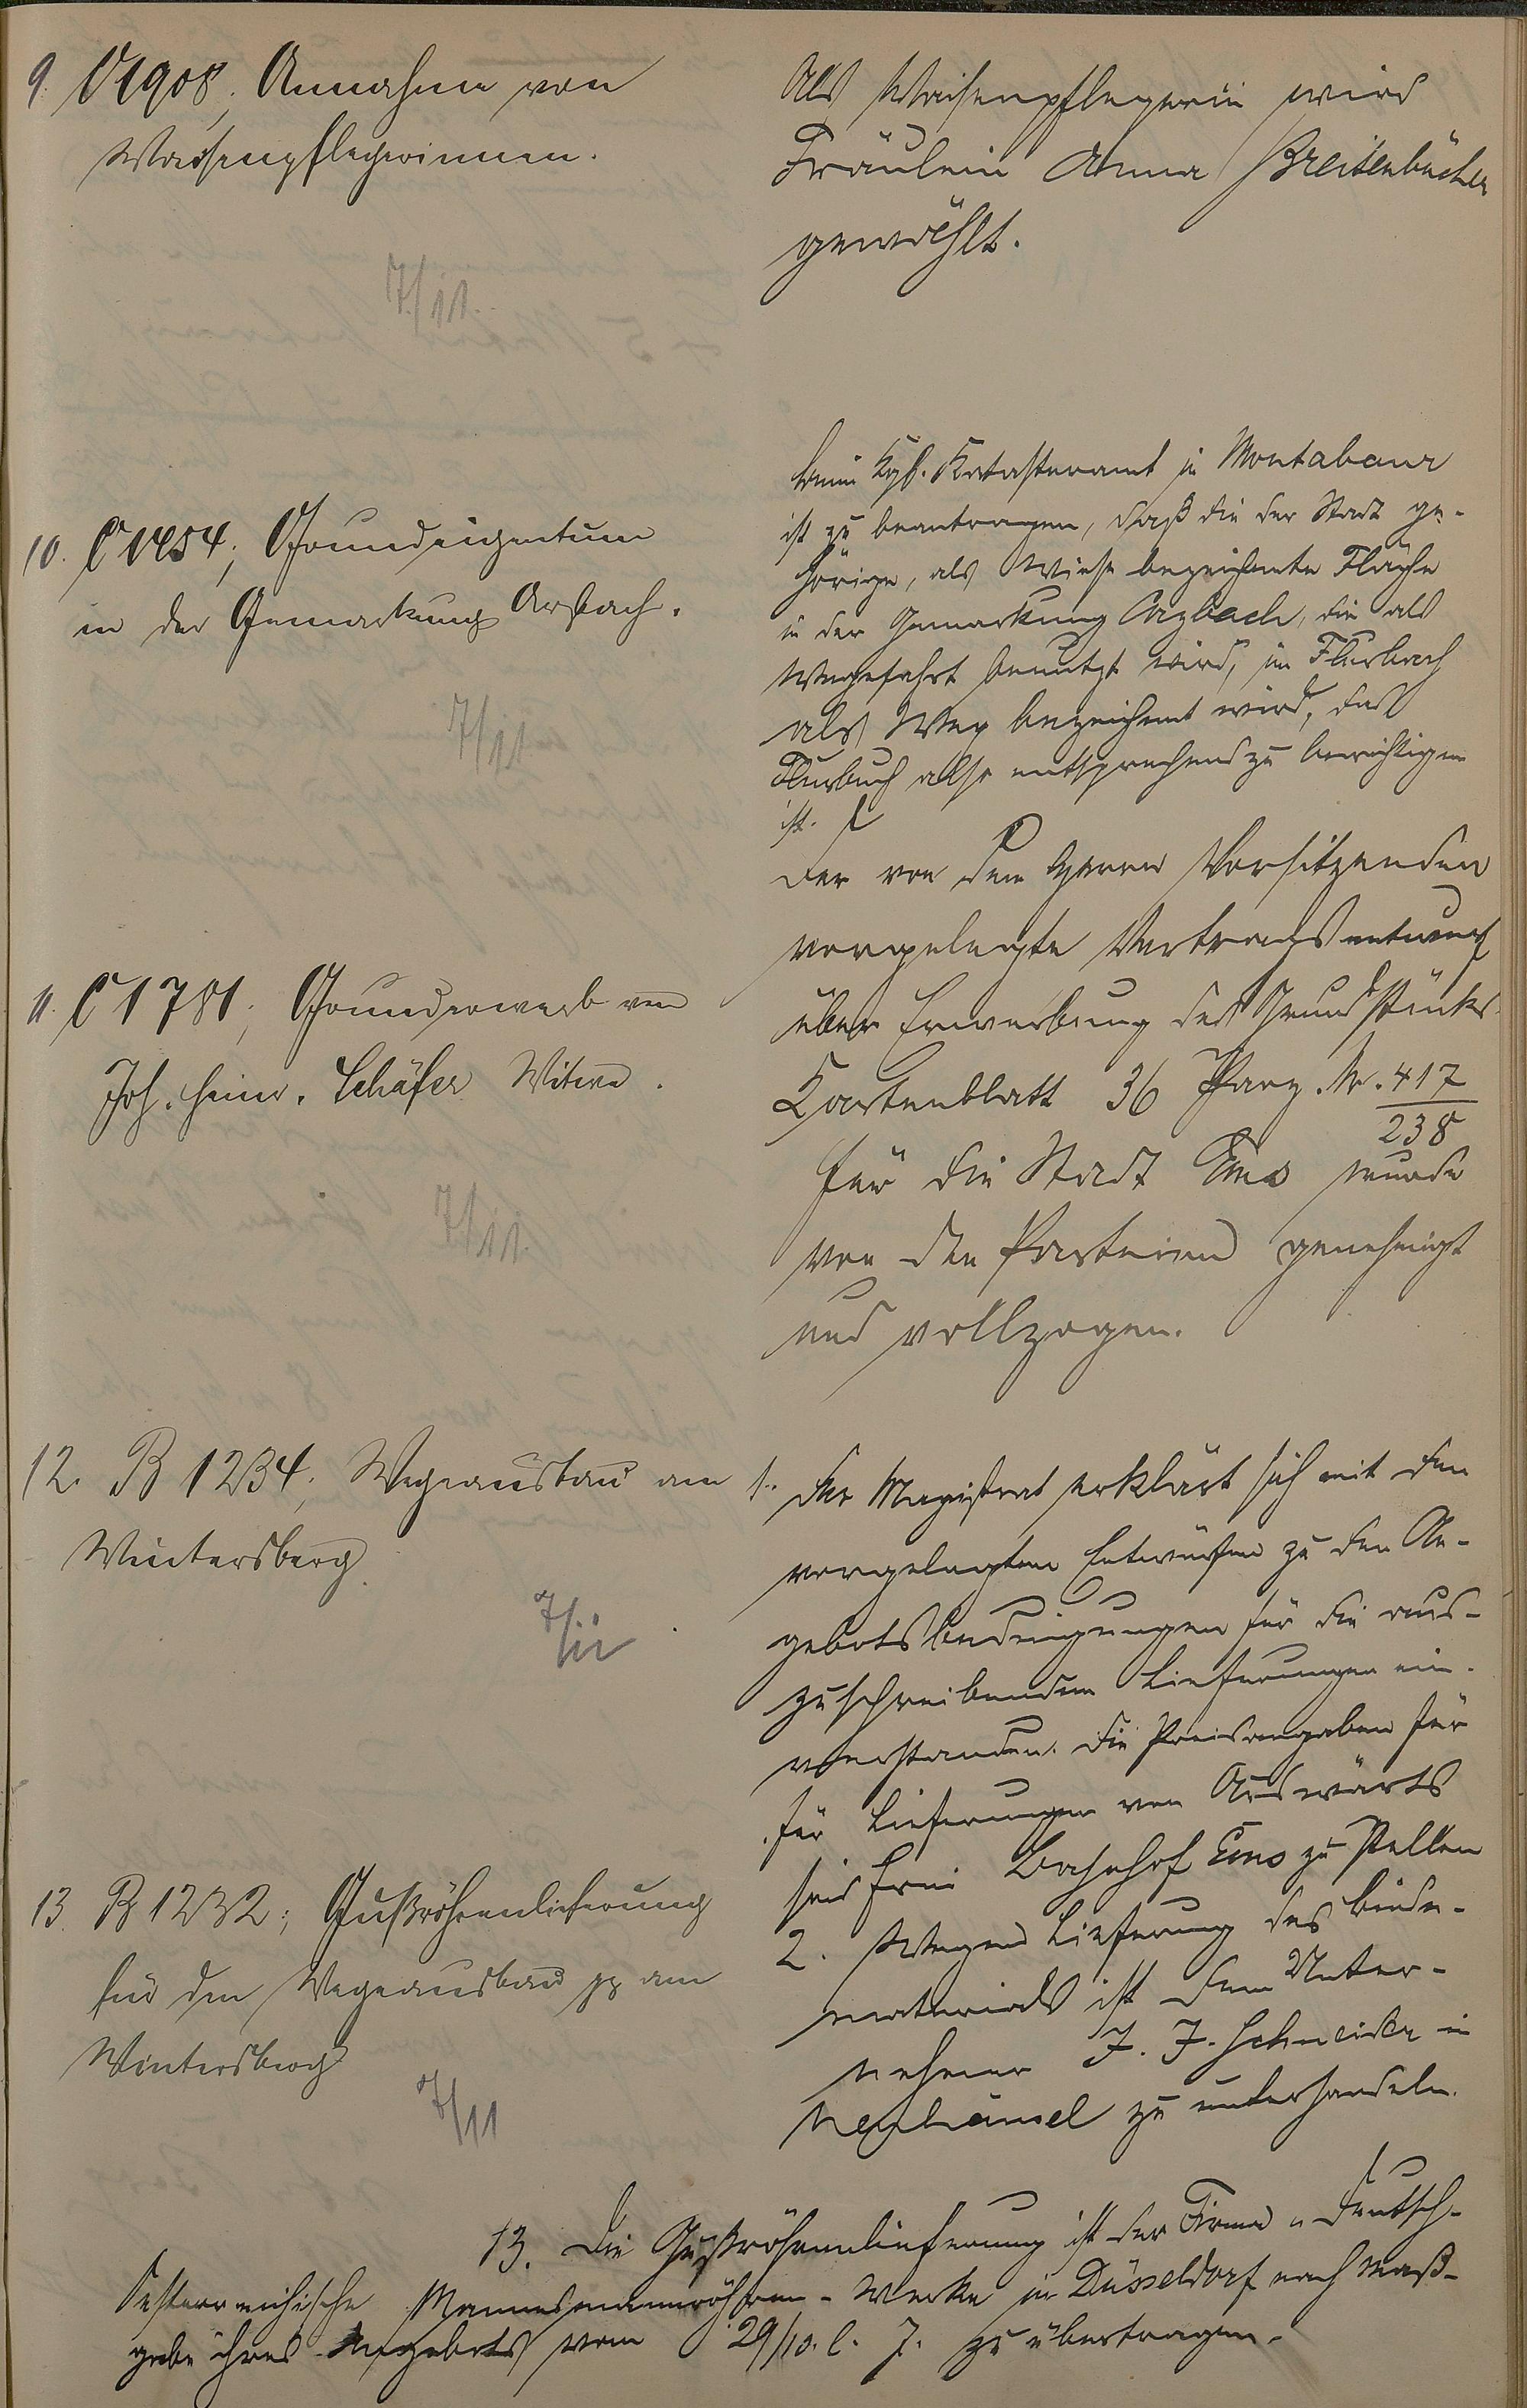 9. C 1908, Annahme von
Waisenpflegerinnen.
7/11.
Als Waisenpflegerin wird
Fräulein Anna Breitenbücher
gewählt.
10. C 1454; Grundeigentum
in der Gemarkung Arzbach.
7/11
beim Kgl. Katasteramt in Montabaur
ist zu beantragen, daß die der Stadt ge-
hörige, als Wiese bezeichnete Fläche
in der Gemarkung Arzbach, die als
benutzt wird, im Flurbuch
als Weg bezeichnet wird, das
Flurbuch also entsprechend zu berichtigen
ist.
11. C 1781; Grunderwerb von
Joh. Heinr. Schäfer Witwe.
7/11.
Der von dem Herrn Vorsitzenden
vorgelegte Vertragsentwurf
über Erwerbung des Grundstücks
Kartenblatt 36 Parz. Nr. 417/238
für die Stadt Ems wurde
von den Parteien genehmigt
und vollzogen.
12. B 1234, Wegeausbau am
Wintersberg.
7/11
1. Der Magistrat erklärt sich mit den
vorgelegten Entwürfen zu den An-
gebotsbedingungen für die aus-
zuschreibenden Lieferungen ein-
verstanden. Die Preisangaben für
für Lieferungen von Auswärts
sind frei Bahnhof Ems zu stellen
2. Wegen Lieferung des Binde-
materials ist dem Unter-
nehmer J. J. Schneider in
Neuhäusel zu unterhandeln.
13. B 1232; Gußröhrenlieferung
für den Wegeausbau pp am
Wintersberg
7/11
13. Die Gußröhrenlieferung ist der Firma „Deutsch-
Österreichische Mannesmannröhren-Werke in Düsseldorf nach Maß-
gabe ihres Angebots vom 29/10. l. J. zu übertragen.